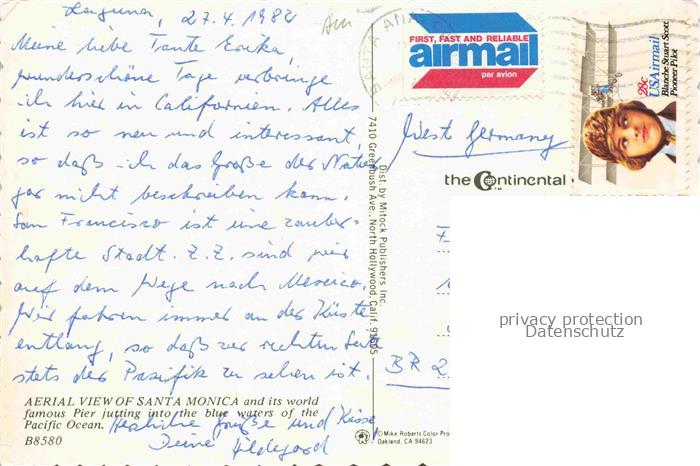 Laguna, 27.4.1982
Meine liebe Tante Erika,
wunderschöne Tage verbringe
ich hier in Californien. Alles
ist so neu und interessant,
so daß ich das Große der Natur
gar nicht beschreiben kann.
San Francisco ist eine zauber-
hafte Stadt. Z.Z. sind wir
auf dem Wege nach Mexico.
Wir fahren immer an der Küste
entlang, so daß zur rechten Seite
stets der Pazifik zu sehen ist.
Herzliche Grüße und Küsse,
Deine Hildegard
AERIAL VIEW OF SANTA MONICA and its world
famous Pier jutting into the blue waters of the
Pacific Ocean.
B8580
Dist. by Mitock Publishers Inc.
7410 Greenbush Ave., North Hollywood, Calif. 91605
FIRST, FAST AND RELIABLE
airmail
par avion
28c
USAirmail
Blanche Stuart Scott
Pioneer Pilot
West Germany
the Continental
TM
BR 2
© Mike Roberts Color Pro
Oakland, CA 94623
privacy protection
Datenschutz